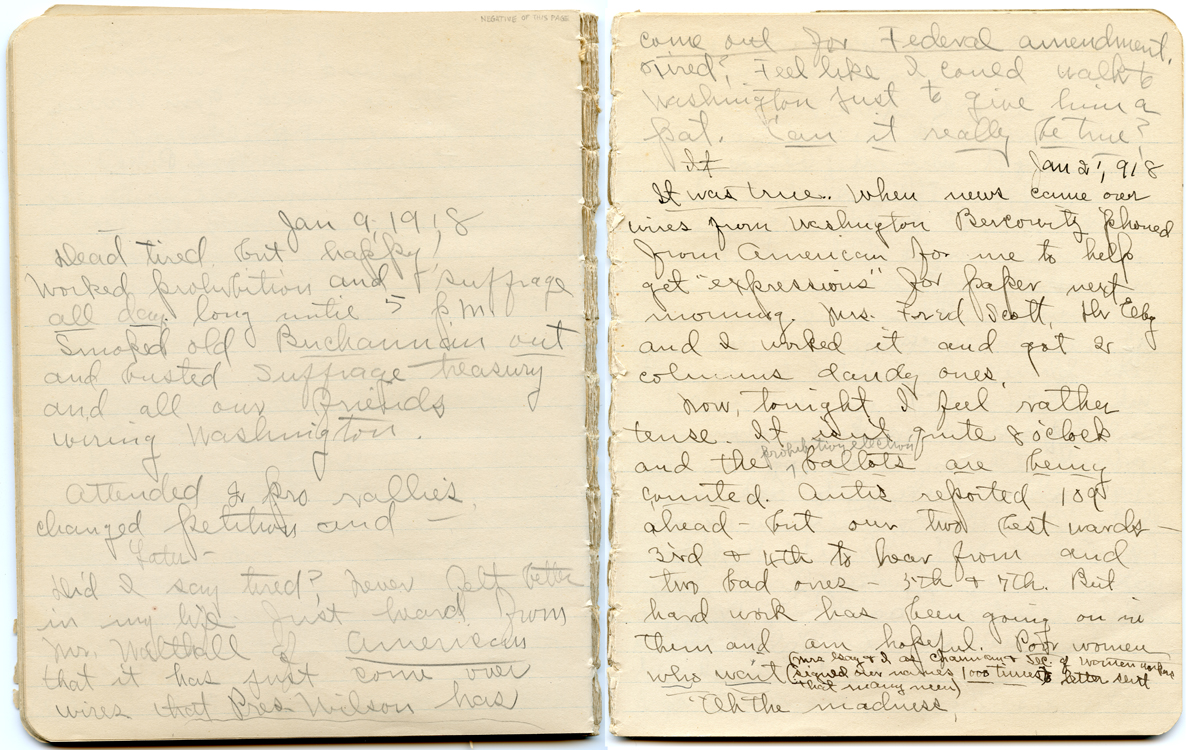 NEGATIVE OF THIS PAGE
Jan 9, 1918
Dead tired but happy,
Worked prohibition and suffrage
all day long until 5 p.m.
Smoked old Buchannan out
and busted suffrage treasury
and all our friends
wiring Washington.
Attended 2 pro rallies,
changed petition and —
Later —
Did I say tired? Never felt better
in my life. Just heard from
Mr. Walthall of American
that it has just come over
wires that Pres. Wilson has
come out for Federal amendment.
Tired? Feel like I could walk to
Washington just to give him a
pat. Can it really be true?
It
Jan 21, 918
It was true. When news came over
wires from Washington Bercowitz phoned
from American for me to help
get "expressions" for paper next
morning. Mrs. Fred Scott, Mr Elby
and I worked it and got 2
columns dandy ones.
Now, tonight I feel rather
tense. It isn't quite 8 o'clock
prohibition election
and the ballots are being
counted. Antis reported 109
ahead – but our two best wards –
3rd & 4th to hear from and
two bad ones – 5th & 7th. But
hard work has been going on in
them and am hopeful. Poor women
who wait (Mrs Gay & I as Chairman & Sec. of women workers
signed our names 1000 times to letter sent
that many men)
"Oh the madness,